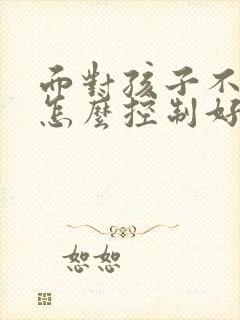 面對孩子不
怎麼控制好
恕恕